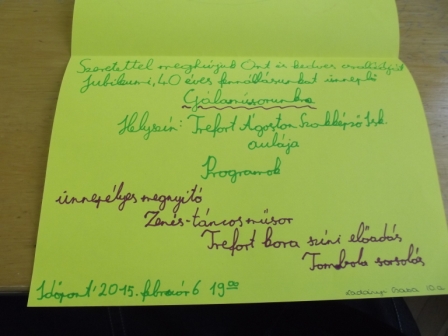 Szeretettel meghívjuk Önt és kedves családját
Jubileumi, 40 éves fennállásunkat ünneplő
Gálaműsorunkra
Helyszín: Trefort Ágoston Szakképző Isk.
aulája
Programok
ünnepélyes megnyitó
Zenés-táncos műsor
Trefort kora színi előadás
Tombola sorsolás
Időpont: 2015. február 6 19 00